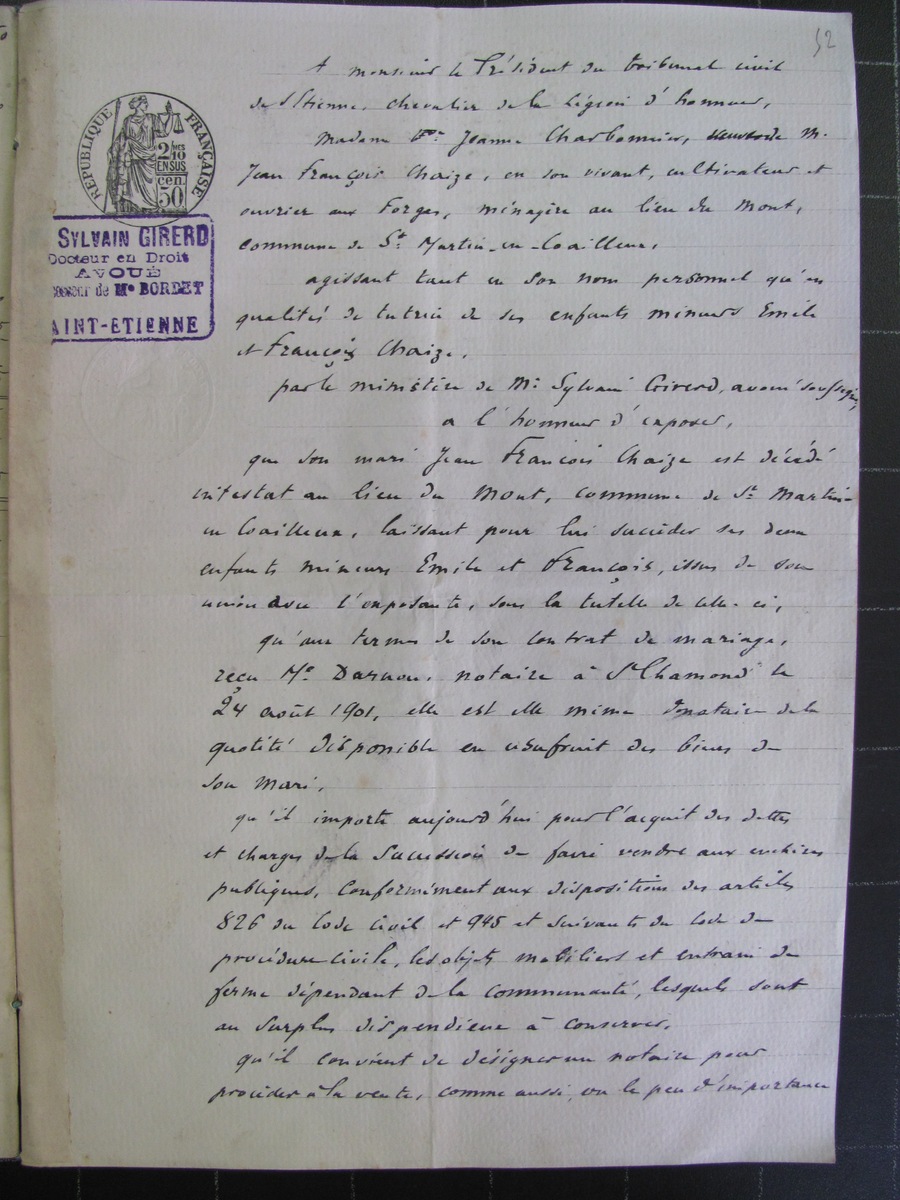 52
A monsieur le Président du tribunal civil
de St Etienne, chevalier de la Légion d'honneur,
Madame Vve Jeanne Charbonnier, veuve de M.
Jean François Chaize, en son vivant, cultivateur et
ouvrier aux Forges, ménagère au lieu du Mont,
commune de St Martin-en-Coailleux,
agissant tant en son nom personnel qu'en
qualités de tutrice de ses enfants mineurs Emile
et François Chaize,
par le ministère de Me Sylvain Girerd, avoué soussigné,
a l'honneur d'exposer,
que son mari Jean François Chaize est décédé
intestat au lieu du Mont, commune de St Martin-
en Coailleux, laissant pour lui succéder ses deux
enfants mineurs Emile et François, issus de son
union avec l'exposante, sous la tutelle de celle-ci,
qu'aux termes de son contrat de mariage,
reçu Me notaire à St Chamond le
24 août 1901, elle est elle même donataire de la
quotité disponible en usufruit des biens de
son mari,
qu'il importe aujourd'hui pour l'acquit des dettes
et charges de la succession de faire vendre aux enchères
publiques, conformément aux dispositions des articles
826 du Code civil et 945 et suivants du Code de
procédure civile, les objets mobiliers et entrain de
ferme dépendant de la communauté, lesquels sont
au surplus dispendieux à conserver,
qu'il convient de désigner un notaire pour
procéder à la vente, comme aussi, vu le peu d'importance
RÉPUBLIQUE FRANÇAISE
2/10mes
EN SUS
50 cen.
SYLVAIN GIRERD
Docteur en Droit
AVOUÉ
esseur de Me BORDET
AINT-ETIENNE